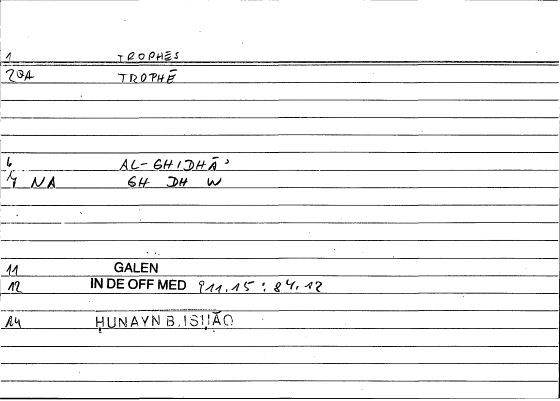 1 TROPHĒS
2GA TROPHĒ
6 AL-GHIDHĀʾ
7 NA GH DH W
11 GALEN
12 IN DE OFF MED 911.15 : 84.12
24 ḤUNAYN B.ISḤĀQ